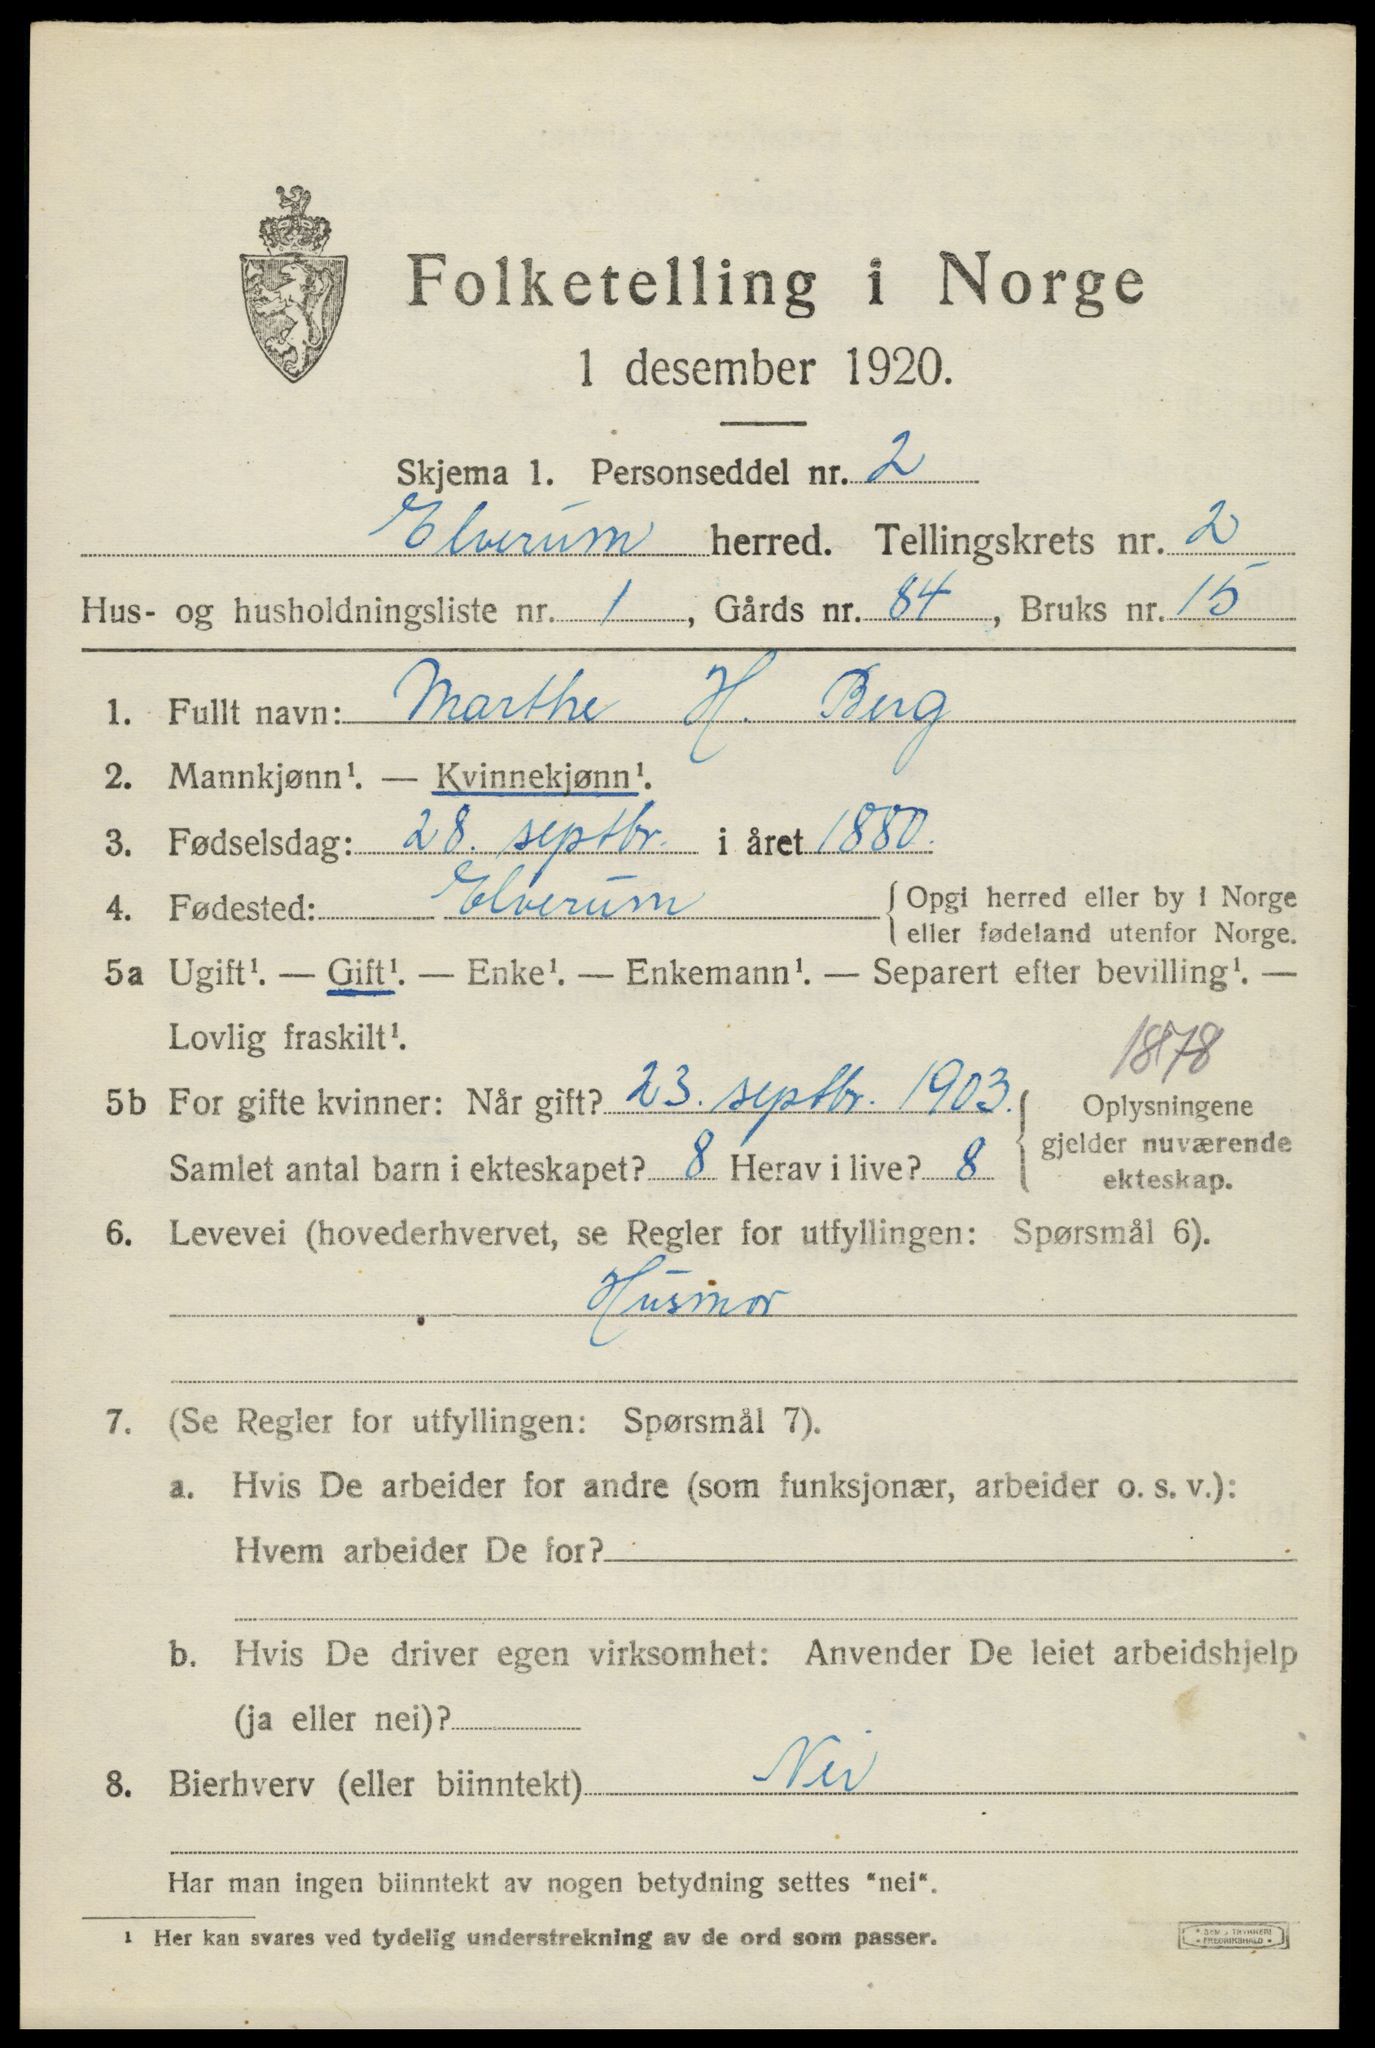 Folketelling i Norge
1 desember 1920.
Skjema 1. Personseddel nr. 2
Elverum herred. Tellingskrets nr. 2
Hus- og husholdningsliste nr. 1, Gårds nr. 84, Bruks nr. 15
1. Fullt navn: Marthe H. Berg
2. Mannkjønn¹. — Kvinnekjønn¹.
3. Fødselsdag: 28. septbr. i året 1880.
4. Fødested: Elverum { Opgi herred eller by i Norge
eller fødeland utenfor Norge.
5a Ugift¹. — Gift¹. — Enke¹. — Enkemann¹. — Separert efter bevilling¹. —
Lovlig fraskilt¹.
1878
5b For gifte kvinner: Når gift? 23. septbr. 1903. { Oplysningene
gjelder nuværende
Samlet antal barn i ekteskapet? 8 Herav i live? 8
ekteskap.
6. Levevei (hovederhvervet, se Regler for utfyllingen: Spørsmål 6).
Husmor
7. (Se Regler for utfyllingen: Spørsmål 7).
a. Hvis De arbeider for andre (som funksjonær, arbeider o. s. v.):
Hvem arbeider De for?
b. Hvis De driver egen virksomhet: Anvender De leiet arbeidshjelp
(ja eller nei)?
8. Bierhverv (eller biinntekt) Nei
Har man ingen biinntekt av nogen betydning settes "nei".
¹ Her kan svares ved tydelig understrekning av de ord som passer.
TRYKKERI
FREDRIKSHALD